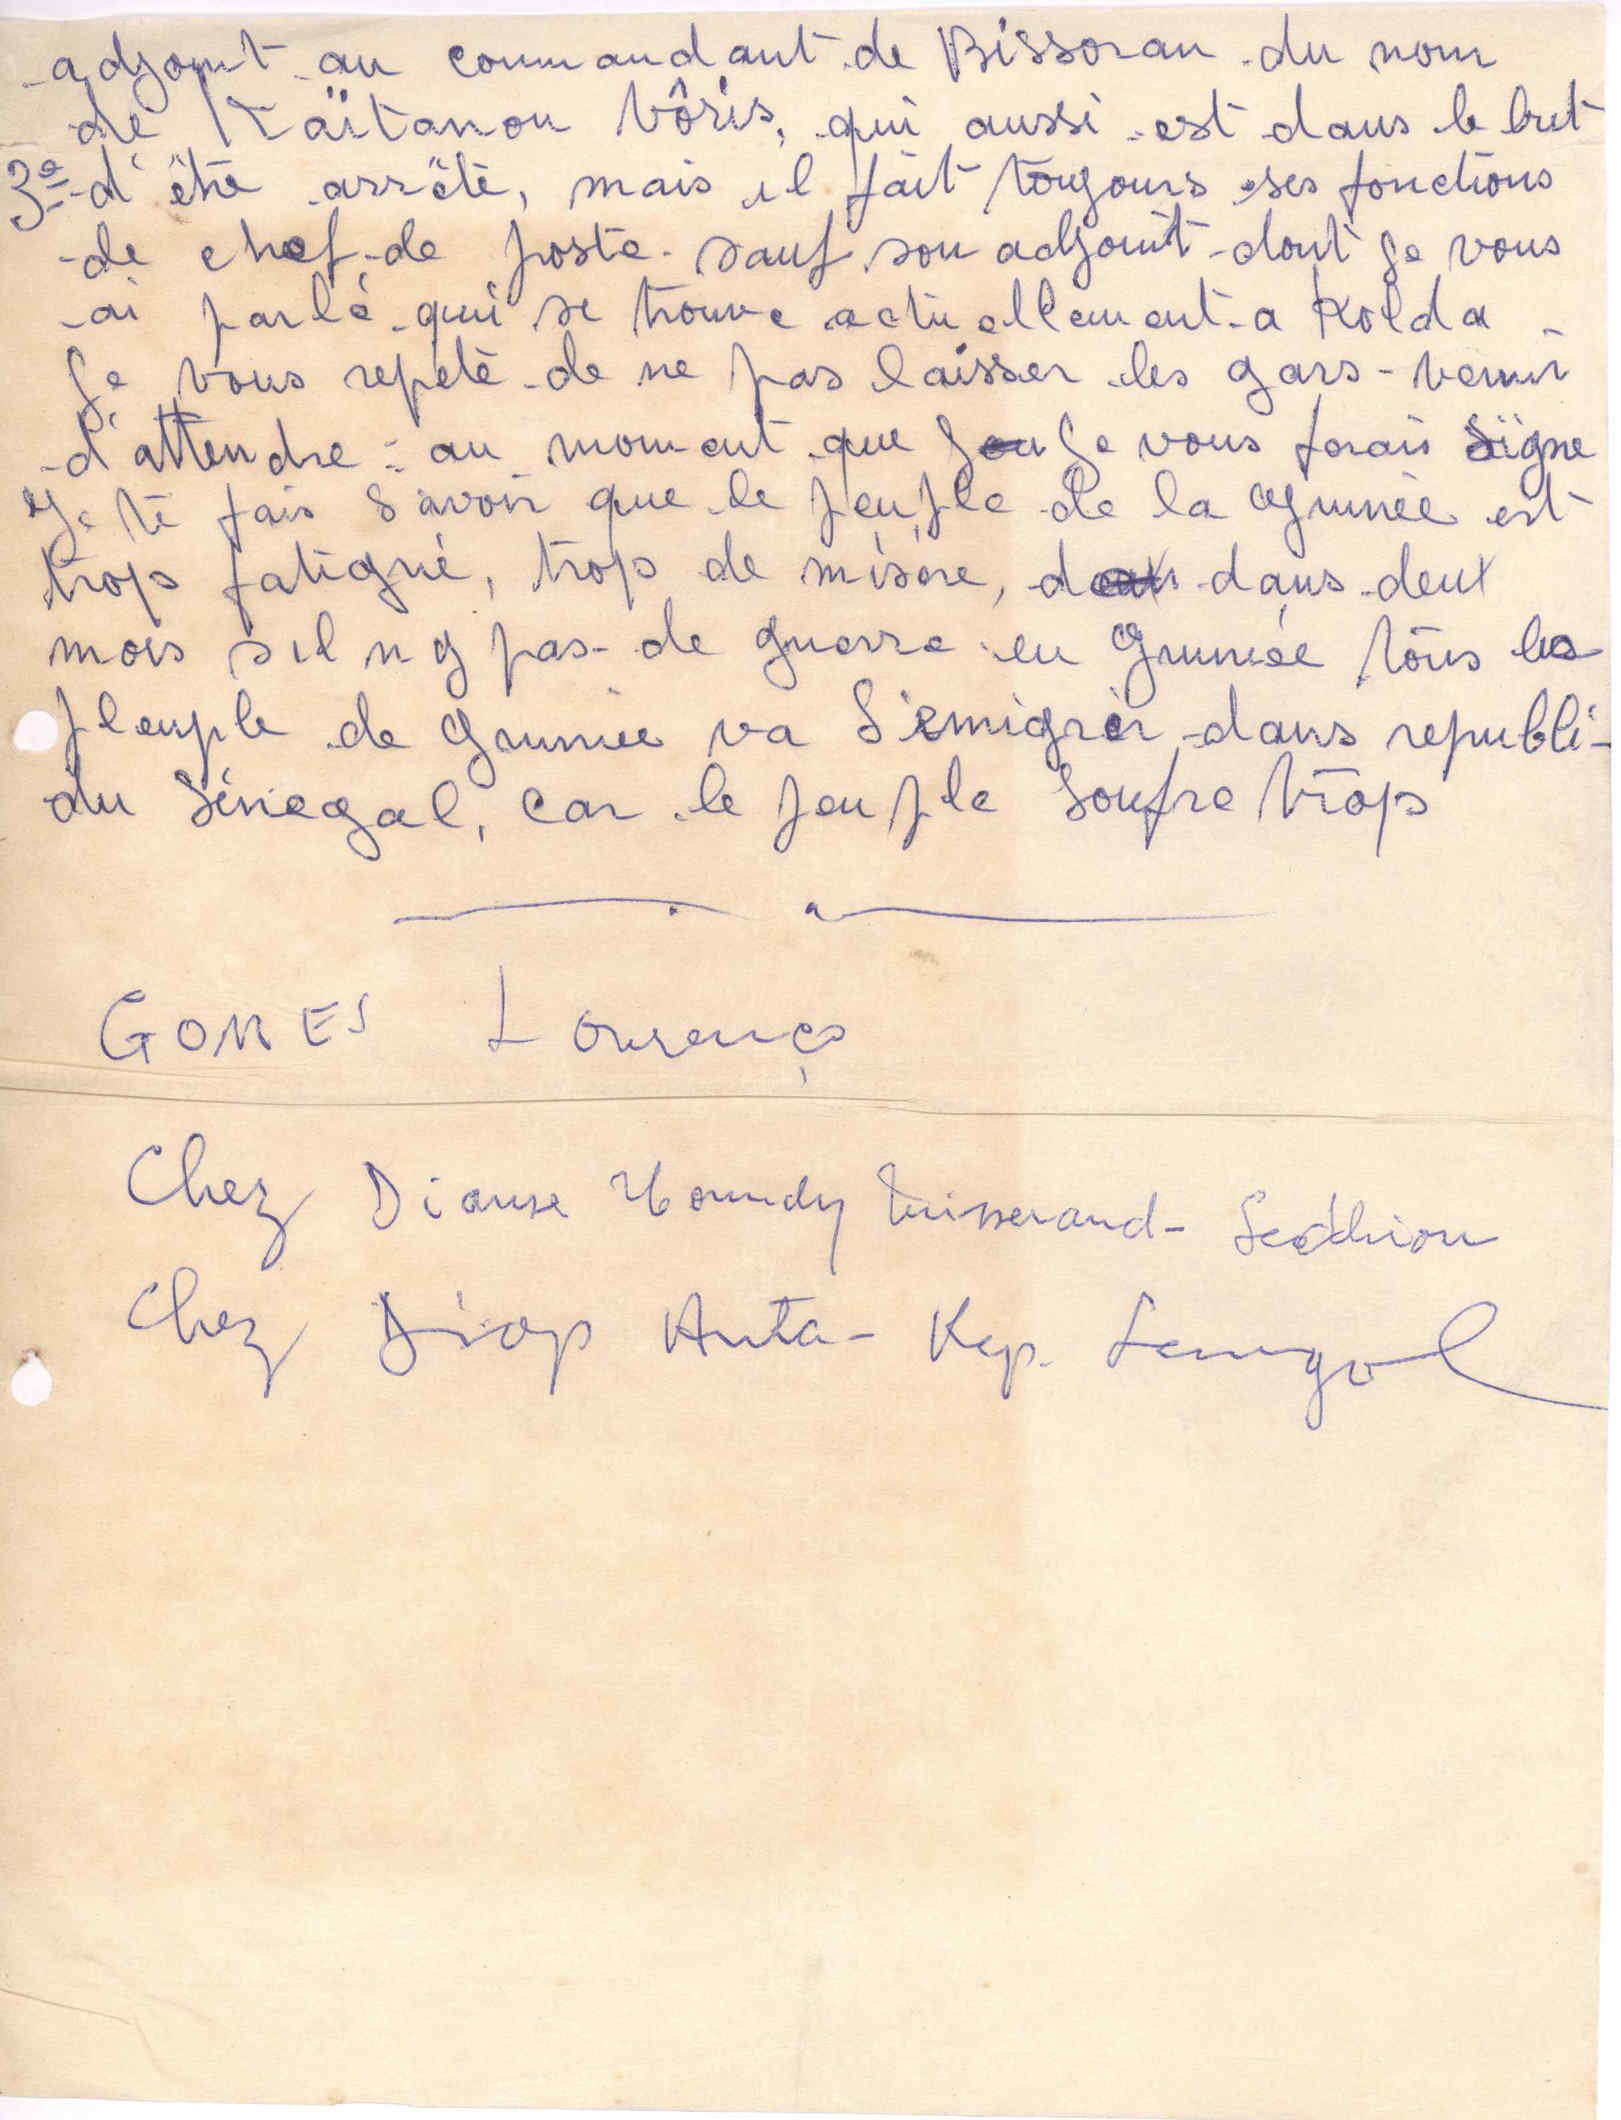 adjoint au commandant de Bissoran du nom
de Käitanou Vôris, qui aussi est dans le but
3e d'être arrêté, mais il fait toujours ses fonctions
de chef de poste sauf son adjouit dont Je vous
ai parlé qui se trouve actuellement a Kolda
Je vous repete de ne pas laisser les gars venir
d'attendre : au moment que Je vous ferais Signe
Je te fais Savoir que le peuple de la Guinée est
trop fatigué, trop de misère, dans deux
mois s il n y pas de guerre en Guinée tous les
pleuple de Guinée va S'emigrer dans republi-
du Sénégal, car le peuple soufre trops
GOMES Lourenço
Chez Dianse tuisserand - Sedhiou
Chez Diop Anta - Rep. Senegal